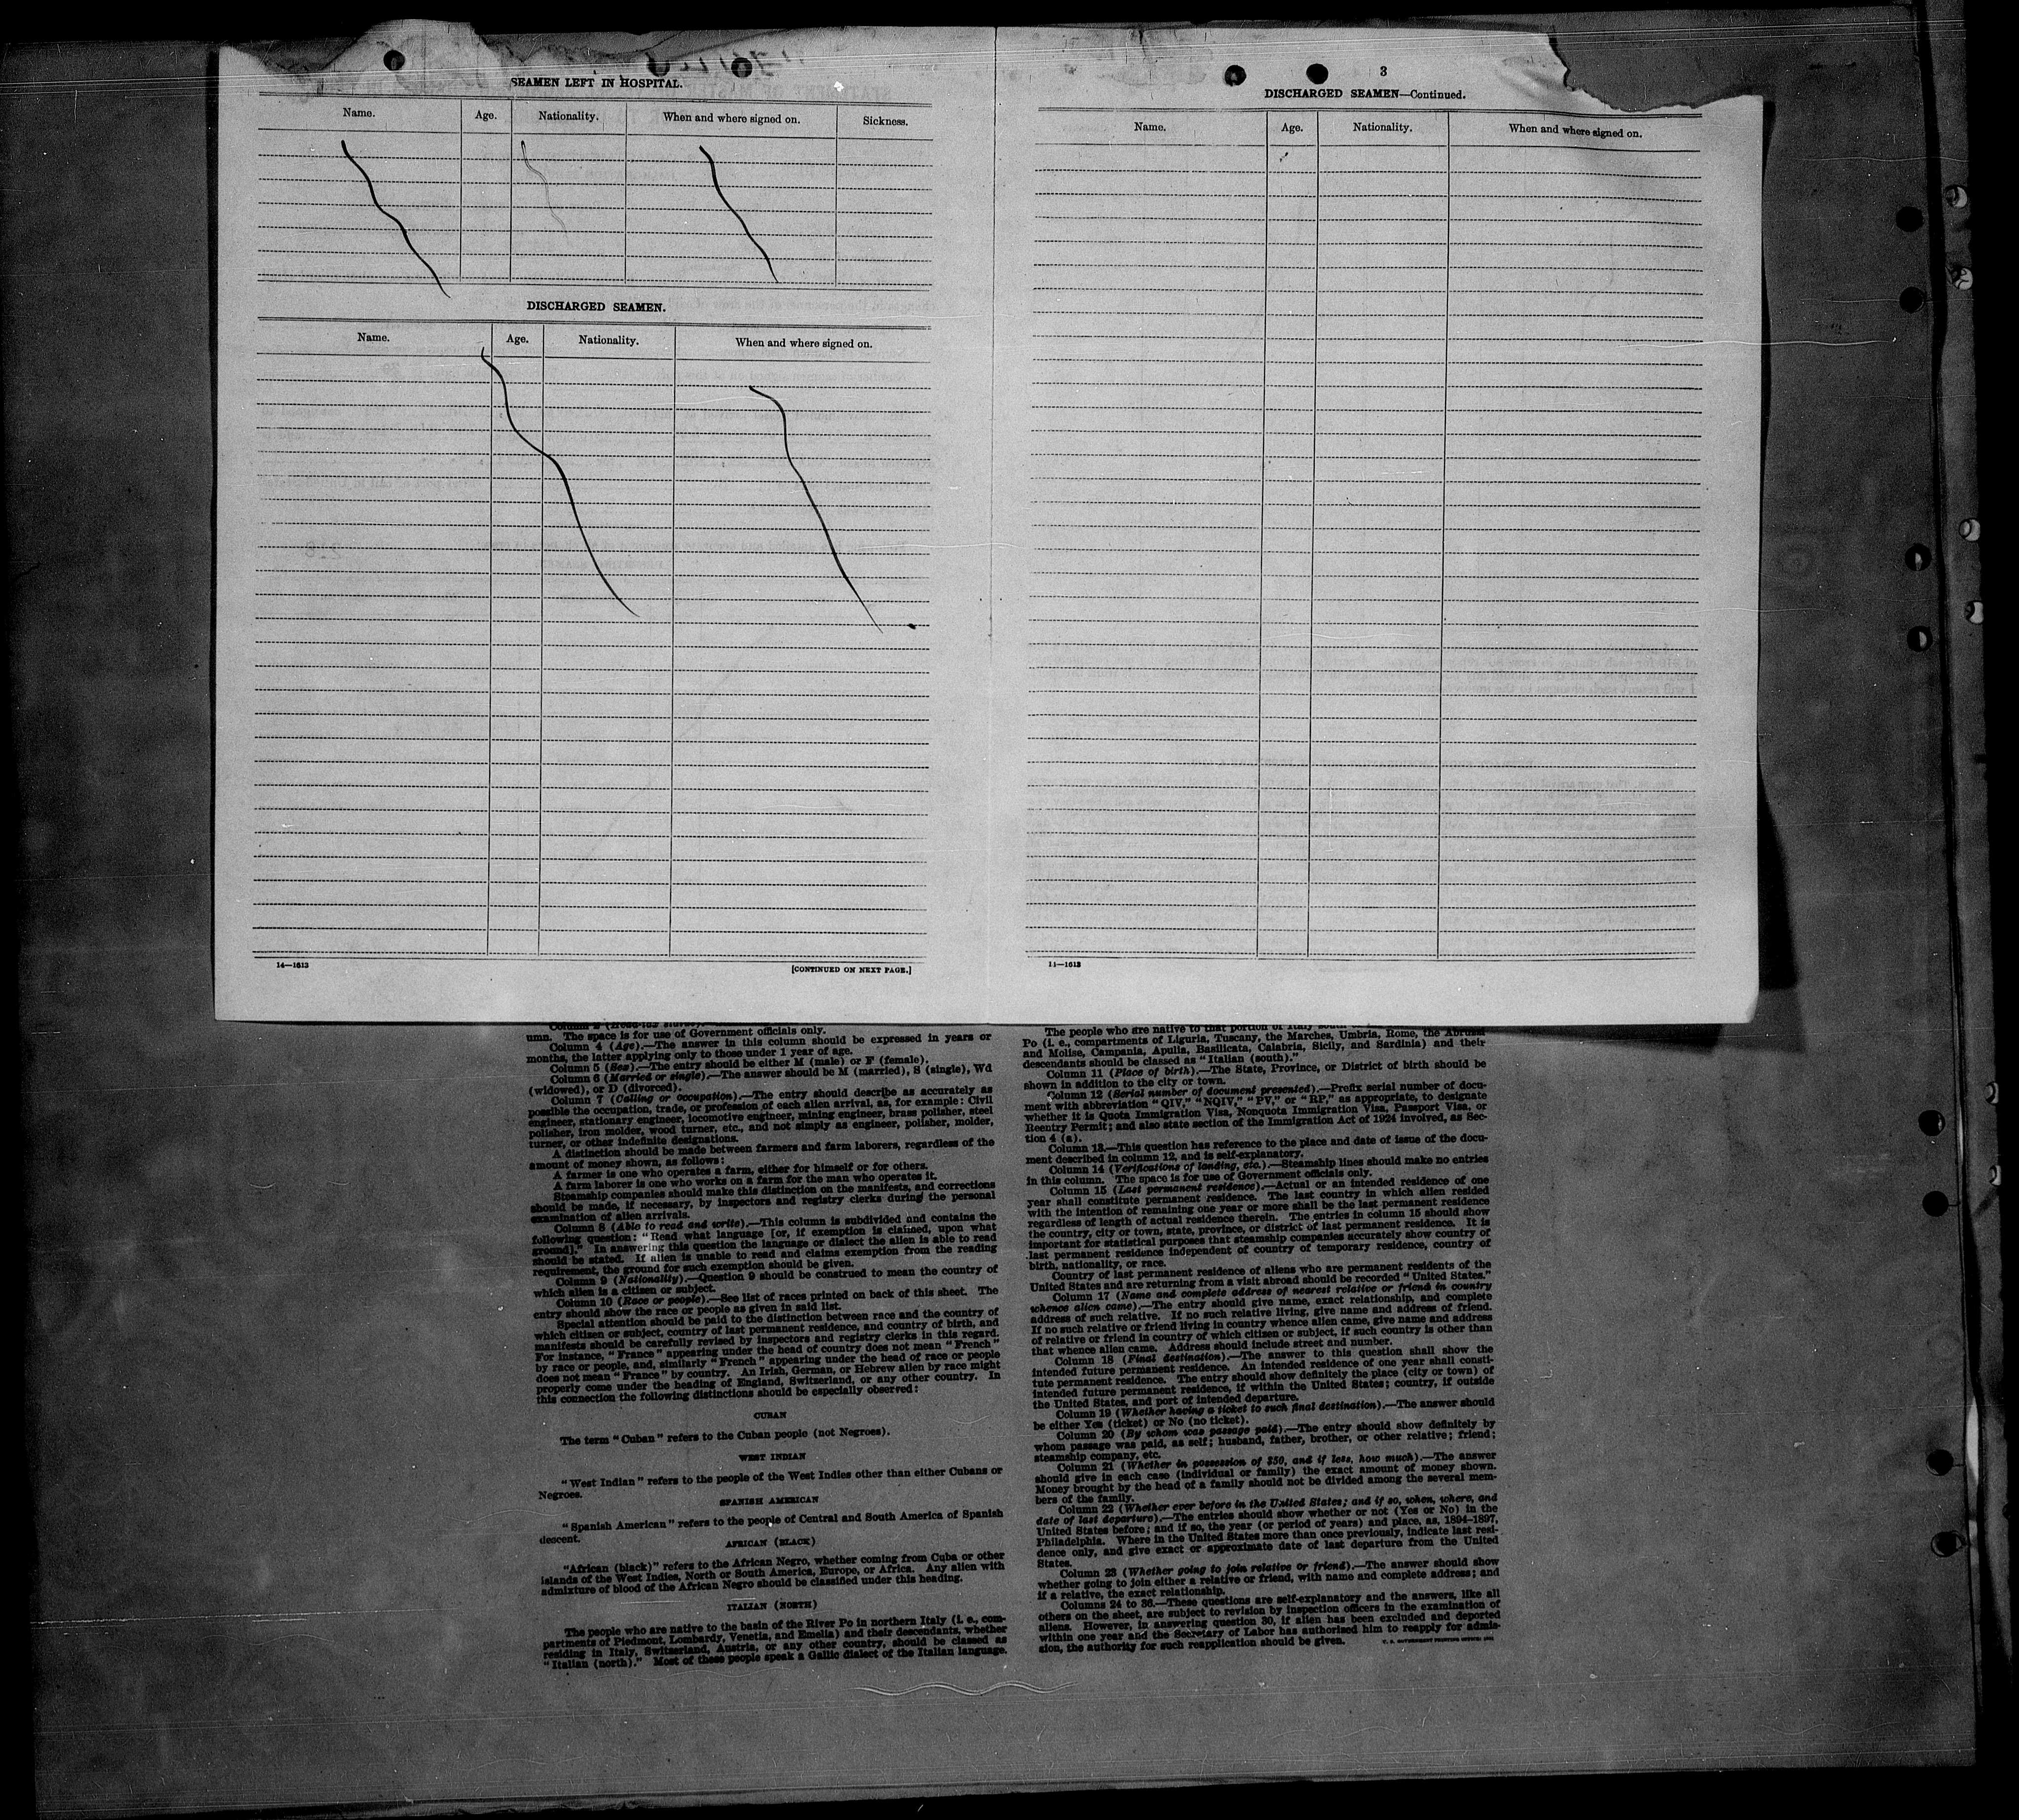 SEAMEN LEFT IN HOSPITAL.
Name. Age. Nationality. When and where signed on. Sickness.
DISCHARGED SEAMEN.
Name. Age. Nationality. When and where signed on.
14—1613 [CONTINUED ON NEXT PAGE.]
3
DISCHARGED SEAMEN—Continued.
Name. Age. Nationality. When and where signed on.
14—1613
umn. The space is for use of Government officials only.
Column 4 (Age).—The answer in this column should be expressed in years or
months, the latter applying only to those under 1 year of age.
Column 5 (Sex).—The entry should be either M (male) or F (female).
Column 6 (Married or single).—The answer should be M (married), S (single), Wd
(widowed), or D (divorced).
Column 7 (Calling or occupation).—The entry should describe as accurately as
possible the occupation, trade, or profession of each alien arrival, as, for example: Civil
engineer, stationary engineer, locomotive engineer, mining engineer, brass polisher, steel
polisher, iron molder, wood turner, etc., and not simply as engineer, polisher, molder,
turner, or other indefinite designations.
A distinction should be made between farmers and farm laborers, regardless of the
amount of money shown, as follows:
A farmer is one who operates a farm, either for himself or for others.
A farm laborer is one who works on a farm for the man who operates it.
Steamship companies should make this distinction on the manifests, and corrections
should be made, if necessary, by inspectors and registry clerks during the personal
examination of alien arrivals.
Column 8 (Able to read and write).—This column is subdivided and contains the
following question: "Read what language [or, if exemption is claimed, upon what
ground]." In answering this question the language or dialect the alien is able to read
should be stated. If alien is unable to read and claims exemption from the reading
requirement, the ground for such exemption should be given.
Column 9 (Nationality).—Question 9 should be construed to mean the country of
which alien is a citizen or subject.
Column 10 (Race or people).—See list of races printed on back of this sheet. The
entry should show the race or people as given in said list.
Special attention should be paid to the distinction between race and the country of
which citizen or subject, country of last permanent residence, and country of birth, and
manifests should be carefully revised by inspectors and registry clerks in this regard.
For instance, "France" appearing under the head of country does not mean "French"
by race or people, and, similarly "French" appearing under the head of race or people
does not mean "France" by country. An Irish, German, or Hebrew alien by race might
properly come under the heading of England, Switzerland, or any other country. In
this connection the following distinctions should be especially observed:
CUBAN
The term "Cuban" refers to the Cuban people (not Negroes).
WEST INDIAN
"West Indian" refers to the people of the West Indies other than either Cubans or
Negroes.
SPANISH AMERICAN
"Spanish American" refers to the people of Central and South America of Spanish
descent.
AFRICAN (BLACK)
"African (black)" refers to the African Negro, whether coming from Cuba or other
islands of the West Indies, North or South America, Europe, or Africa. Any alien with
admixture of blood of the African Negro should be classified under this heading.
ITALIAN (NORTH)
The people who are native to the basin of the River Po in northern Italy (i. e., com-
partments of Piedmont, Lombardy, Venetia, and Emelia) and their descendants, whether
residing in Italy, Switzerland, Austria, or any other country, should be classed as
"Italian (north)." Most of these people speak a Gallic dialect of the Italian language.
The people who are native to that portion of Italy south
Po (i. e., compartments of Liguria, Tuscany, the Marches, Umbria, Rome, the Abruzzi
and Molise, Campania, Apulia, Basilicata, Calabria, Sicily, and Sardinia) and their
descendants should be classed as "Italian (south)."
Column 11 (Place of birth).—The State, Province, or District of birth should be
shown in addition to the city or town.
Column 12 (Serial number of document presented).—Prefix serial number of docu-
ment with abbreviation "QIV," "NQIV," "PV," or "RP," as appropriate, to designate
whether it is Quota Immigration Visa, Nonquota Immigration Visa, Passport Visa, or
Reentry Permit; and also state section of the Immigration Act of 1924 involved, as Sec-
tion 4 (a).
Column 13.—This question has reference to the place and date of issue of the docu-
ment described in column 12, and is self-explanatory.
Column 14 (Verifications of landing, etc.).—Steamship lines should make no entries
in this column. The space is for use of Government officials only.
Column 15 (Last permanent residence).—Actual or an intended residence of one
year shall constitute permanent residence. The last country in which alien resided
with the intention of remaining one year or more shall be the last permanent residence
regardless of length of actual residence therein. The entries in column 15 should show
the country, city or town, state, province, or district of last permanent residence. It is
important for statistical purposes that steamship companies accurately show country of
last permanent residence independent of country of temporary residence, country of
birth, nationality, or race.
Country of last permanent residence of aliens who are permanent residents of the
United States and are returning from a visit abroad should be recorded "United States."
Column 17 (Name and complete address of nearest relative or friend in country
whence alien came).—The entry should give name, exact relationship, and complete
address of such relative. If no such relative living, give name and address of friend.
If no such relative or friend living in country whence alien came, give name and address
of relative or friend in country of which citizen or subject, if such country is other than
that whence alien came. Address should include street and number.
Column 18 (Final destination).—The answer to this question shall show the
intended future permanent residence. An intended residence of one year shall consti-
tute permanent residence. The entry should show definitely the place (city or town) of
intended future permanent residence, if within the United States; country, if outside
the United States, and port of intended departure.
Column 19 (Whether having a ticket to such final destination).—The answer should
be either Yes (ticket) or No (no ticket).
Column 20 (By whom was passage paid).—The entry should show definitely by
whom passage was paid, as self; husband, father, brother, or other relative; friend;
steamship company, etc.
Column 21 (Whether in possession of $50, and if less, how much).—The answer
should give in each case (individual or family) the exact amount of money shown.
Money brought by the head of a family should not be divided among the several mem-
bers of the family.
Column 22 (Whether ever before in the United States; and if so, when, where, and
date of last departure).—The entries should show whether or not (Yes or No) in the
United States before; and if so, the year (or period of years) and place, as, 1894-1897,
Philadelphia. Where in the United States more than once previously, indicate last resi-
dence only, and give exact or approximate date of last departure from the United
States.
Column 23 (Whether going to join relative or friend).—The answer should show
whether going to join either a relative or friend, with name and complete address; and
if a relative, the exact relationship.
Columns 24 to 36.—These questions are self-explanatory and the answers, like all
others on the sheet, are subject to revision by inspection officers in the examination of
aliens. However, in answering question 30, if alien has been excluded and deported
within one year and the Secretary of Labor has authorized him to reapply for admis-
sion, the authority for such reapplication should be given.
U. S. GOVERNMENT PRINTING OFFICE